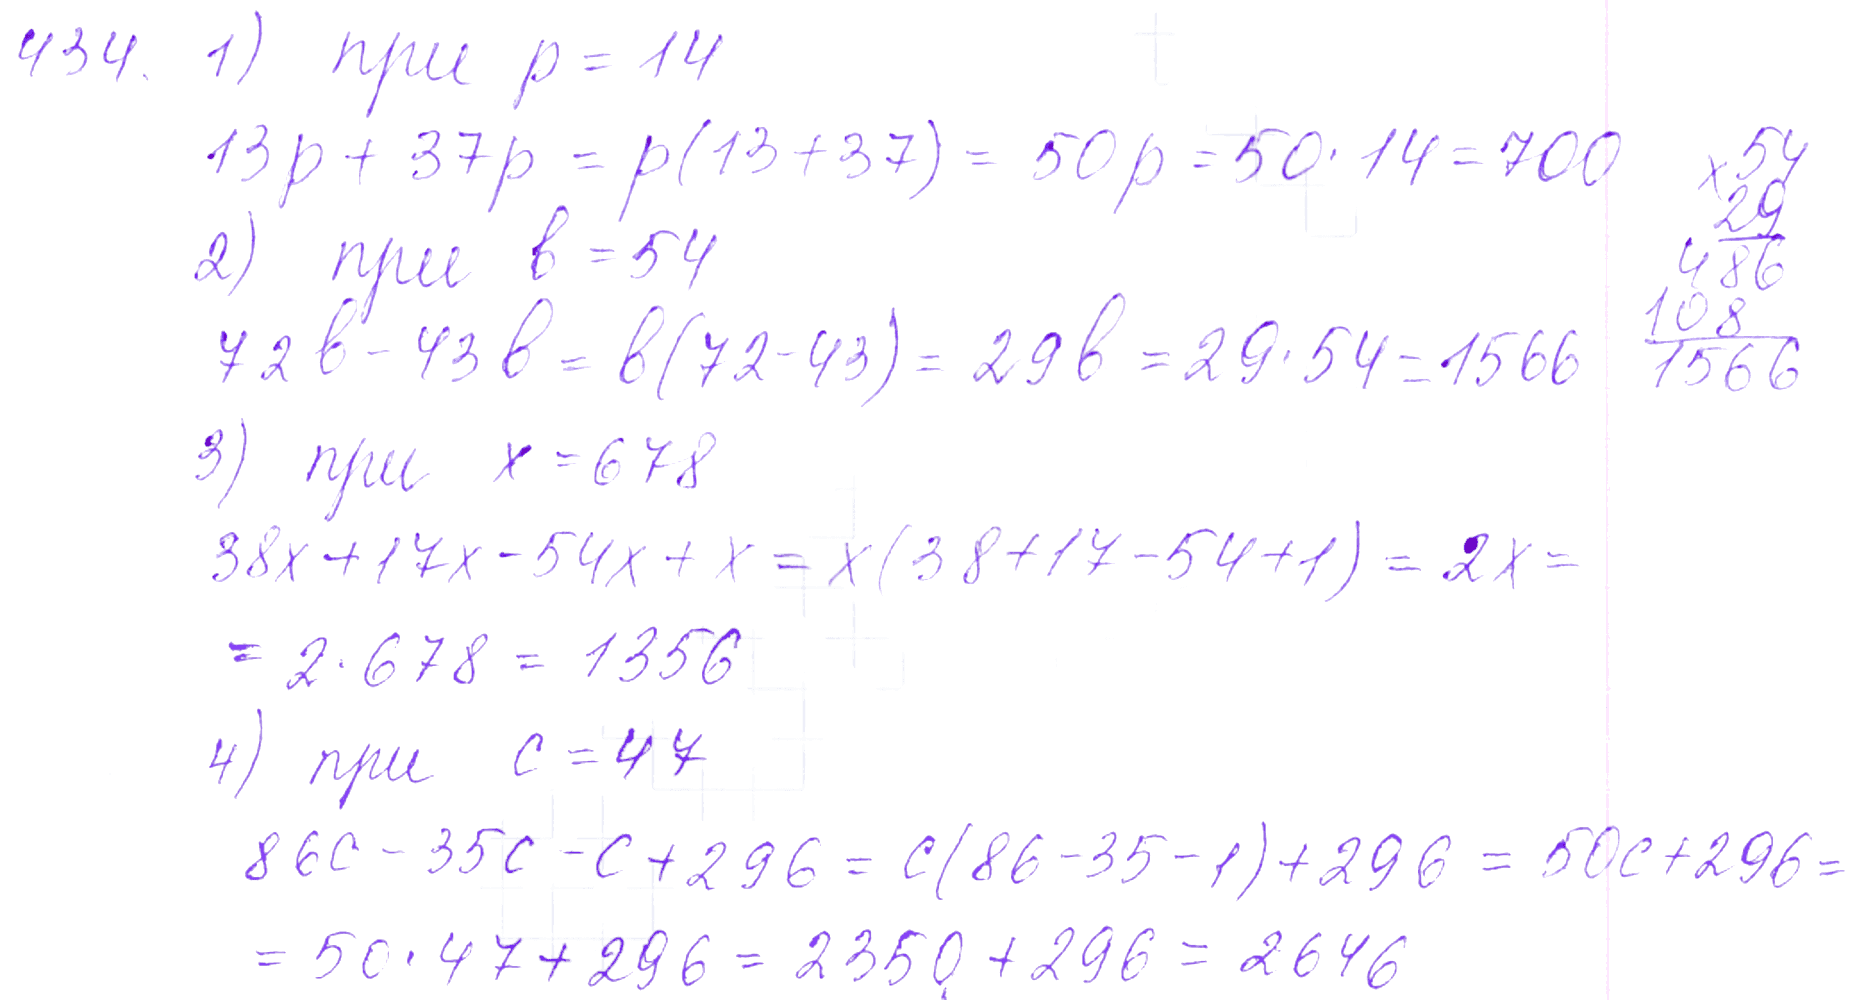 434. 1) при p = 14
13p + 37p = p(13+37) = 50p = 50·14 = 700
2) при b = 54
72b - 43b = b(72-43) = 29b = 29·54 = 1566
×54
29
486
108
1566
3) при x = 678
38x + 17x - 54x + x = x(38+17-54+1) = 2x =
= 2·678 = 1356
4) при c = 47
86c - 35c - c + 296 = c(86-35-1) + 296 = 50c + 296 =
= 50·47 + 296 = 2350 + 296 = 2646